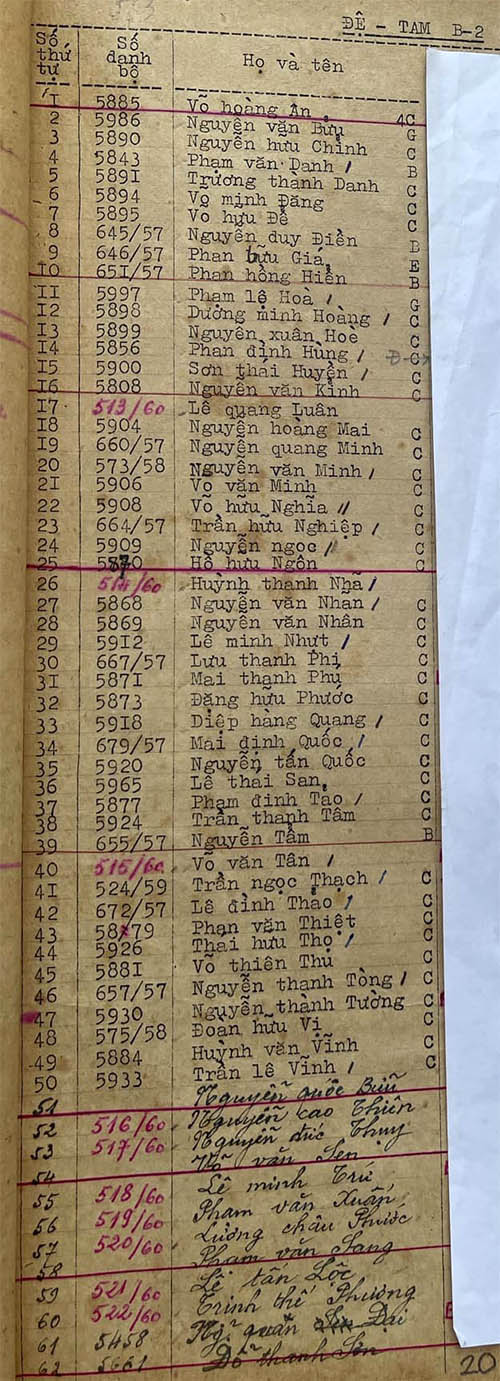 ĐỆ - TAM B-2
Số thứ tự Số danh bộ Họ và tên
I 5885 Võ hoàng Ân 4C
2 5986 Nguyễn văn Bửu G
3 5890 Nguyễn hưu Chỉnh C
4 5843 Phạm văn Danh / B
5 589I Trương thành Danh C
6 5894 Vo minh Đăng C
7 5895 Vo hưu Đê C
8 645/57 Nguyễn duy Điền B
9 646/57 Phan bửu Giá E
I0 65I/57 Phan hồng Hiển B
II 5997 Phạm lệ Hoà / G
I2 5898 Dương minh Hoàng / C
I3 5899 Nguyễn xuân Hoe C
I4 5856 Phan đình Hùng / C
I5 5900 Sơn thái Huyền / C
I6 5808 Nguyễn văn Kỉnh C
I7 513/60 Lê quang Luân
I8 5904 Nguyễn hoàng Mai C
I9 660/57 Nguyễn quang Minh C
20 573/58 Nguyễn văn Minh / C
2I 5906 Võ văn Minh C
22 5908 Võ hưu Nghĩa // C
23 664/57 Trần hưu Nghiệp / C
24 5909 Nguyễn ngọc // C
25 5870 Hồ hưu Ngôn C
26 514/60 Huỳnh thanh Nhã /
27 5868 Nguyễn văn Nhàn / C
28 5869 Nguyễn văn Nhân C
29 59I2 Lê minh Nhựt / C
30 667/57 Lưu thanh Phị C
3I 587I Mai thanh Phụ C
32 5873 Đặng hữu Phước C
33 59I8 Diệp hàng Quang / C
34 679/57 Mai định Quốc / C
35 5920 Nguyễn tấn Quốc C
36 5965 Lê thái San C
37 5877 Phạm đinh Tạo / C
38 5924 Trần thanh Tâm C
39 655/57 Nguyễn Tầm B
40 515/60 Võ văn Tân /
4I 524/59 Trần ngọc Thạch / C
42 672/57 Lê đình Thảo / C
43 5879 Phan văn Thiệt C
44 5926 Thái hưu Thọ / C
45 588I Võ thiên Thu C
46 657/57 Nguyễn thanh Tòng / C
47 5930 Nguyễn thành Tường C
48 575/58 Đoàn hữu Vị C
49 5884 Huỳnh văn Vĩnh C
50 5933 Trần lê Vĩnh / C
51 Nguyễn quốc Bửu
52 516/60 Nguyễn cao Thiên
53 517/60 Nguyễn đức Thuy
54 Võ văn Sen
55 518/60 Lê minh Trú
56 519/60 Phạm văn Xuân
57 520/60 Lương châu Phước
58 Phạm văn Sang
59 521/60 Lê tấn Lộc
60 522/60 Trịnh thế Phương
61 5458 Ng. quán Đại
62 Đỗ thanh Sơn
20